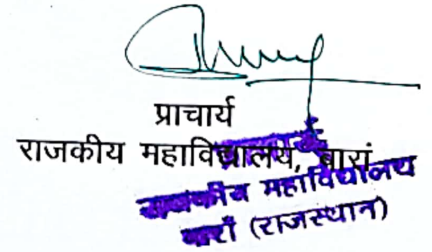 प्राचार्य
राजकीय महाविद्यालय, बारां
राजकीय महाविद्यालय
बारां (राजस्थान)